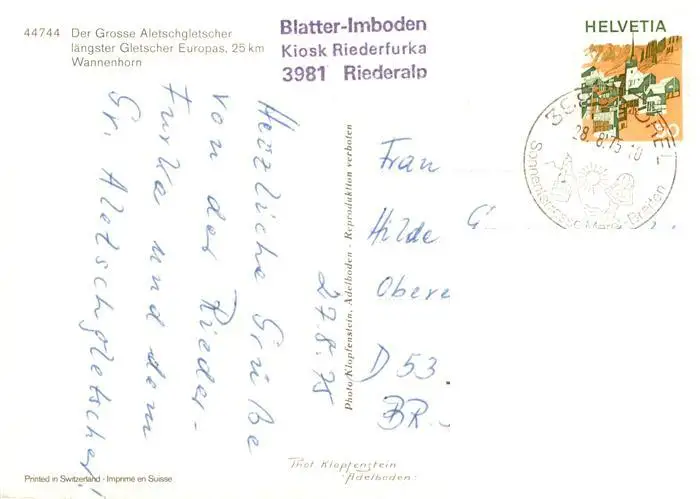 44744 Der Grosse Aletschgletscher
längster Gletscher Europas, 25 km
Wannenhorn
Blatter-Imboden
Kiosk Riederfurka
3981 Riederalp
HELVETIA
28.8.75
Sonnenterrasse
Breiten
27.8.75
Herzliche Grüße
von der Rieder-
furka und dem
Gr. Aletschgletscher!
Photo/Klopfenstein, Adelboden - Reproduktion verboten
Frau
Hilde
Obere
D 53
BR.
Phot Klopfenstein
Adelboden.
Printed in Switzerland - Imprimé en Suisse